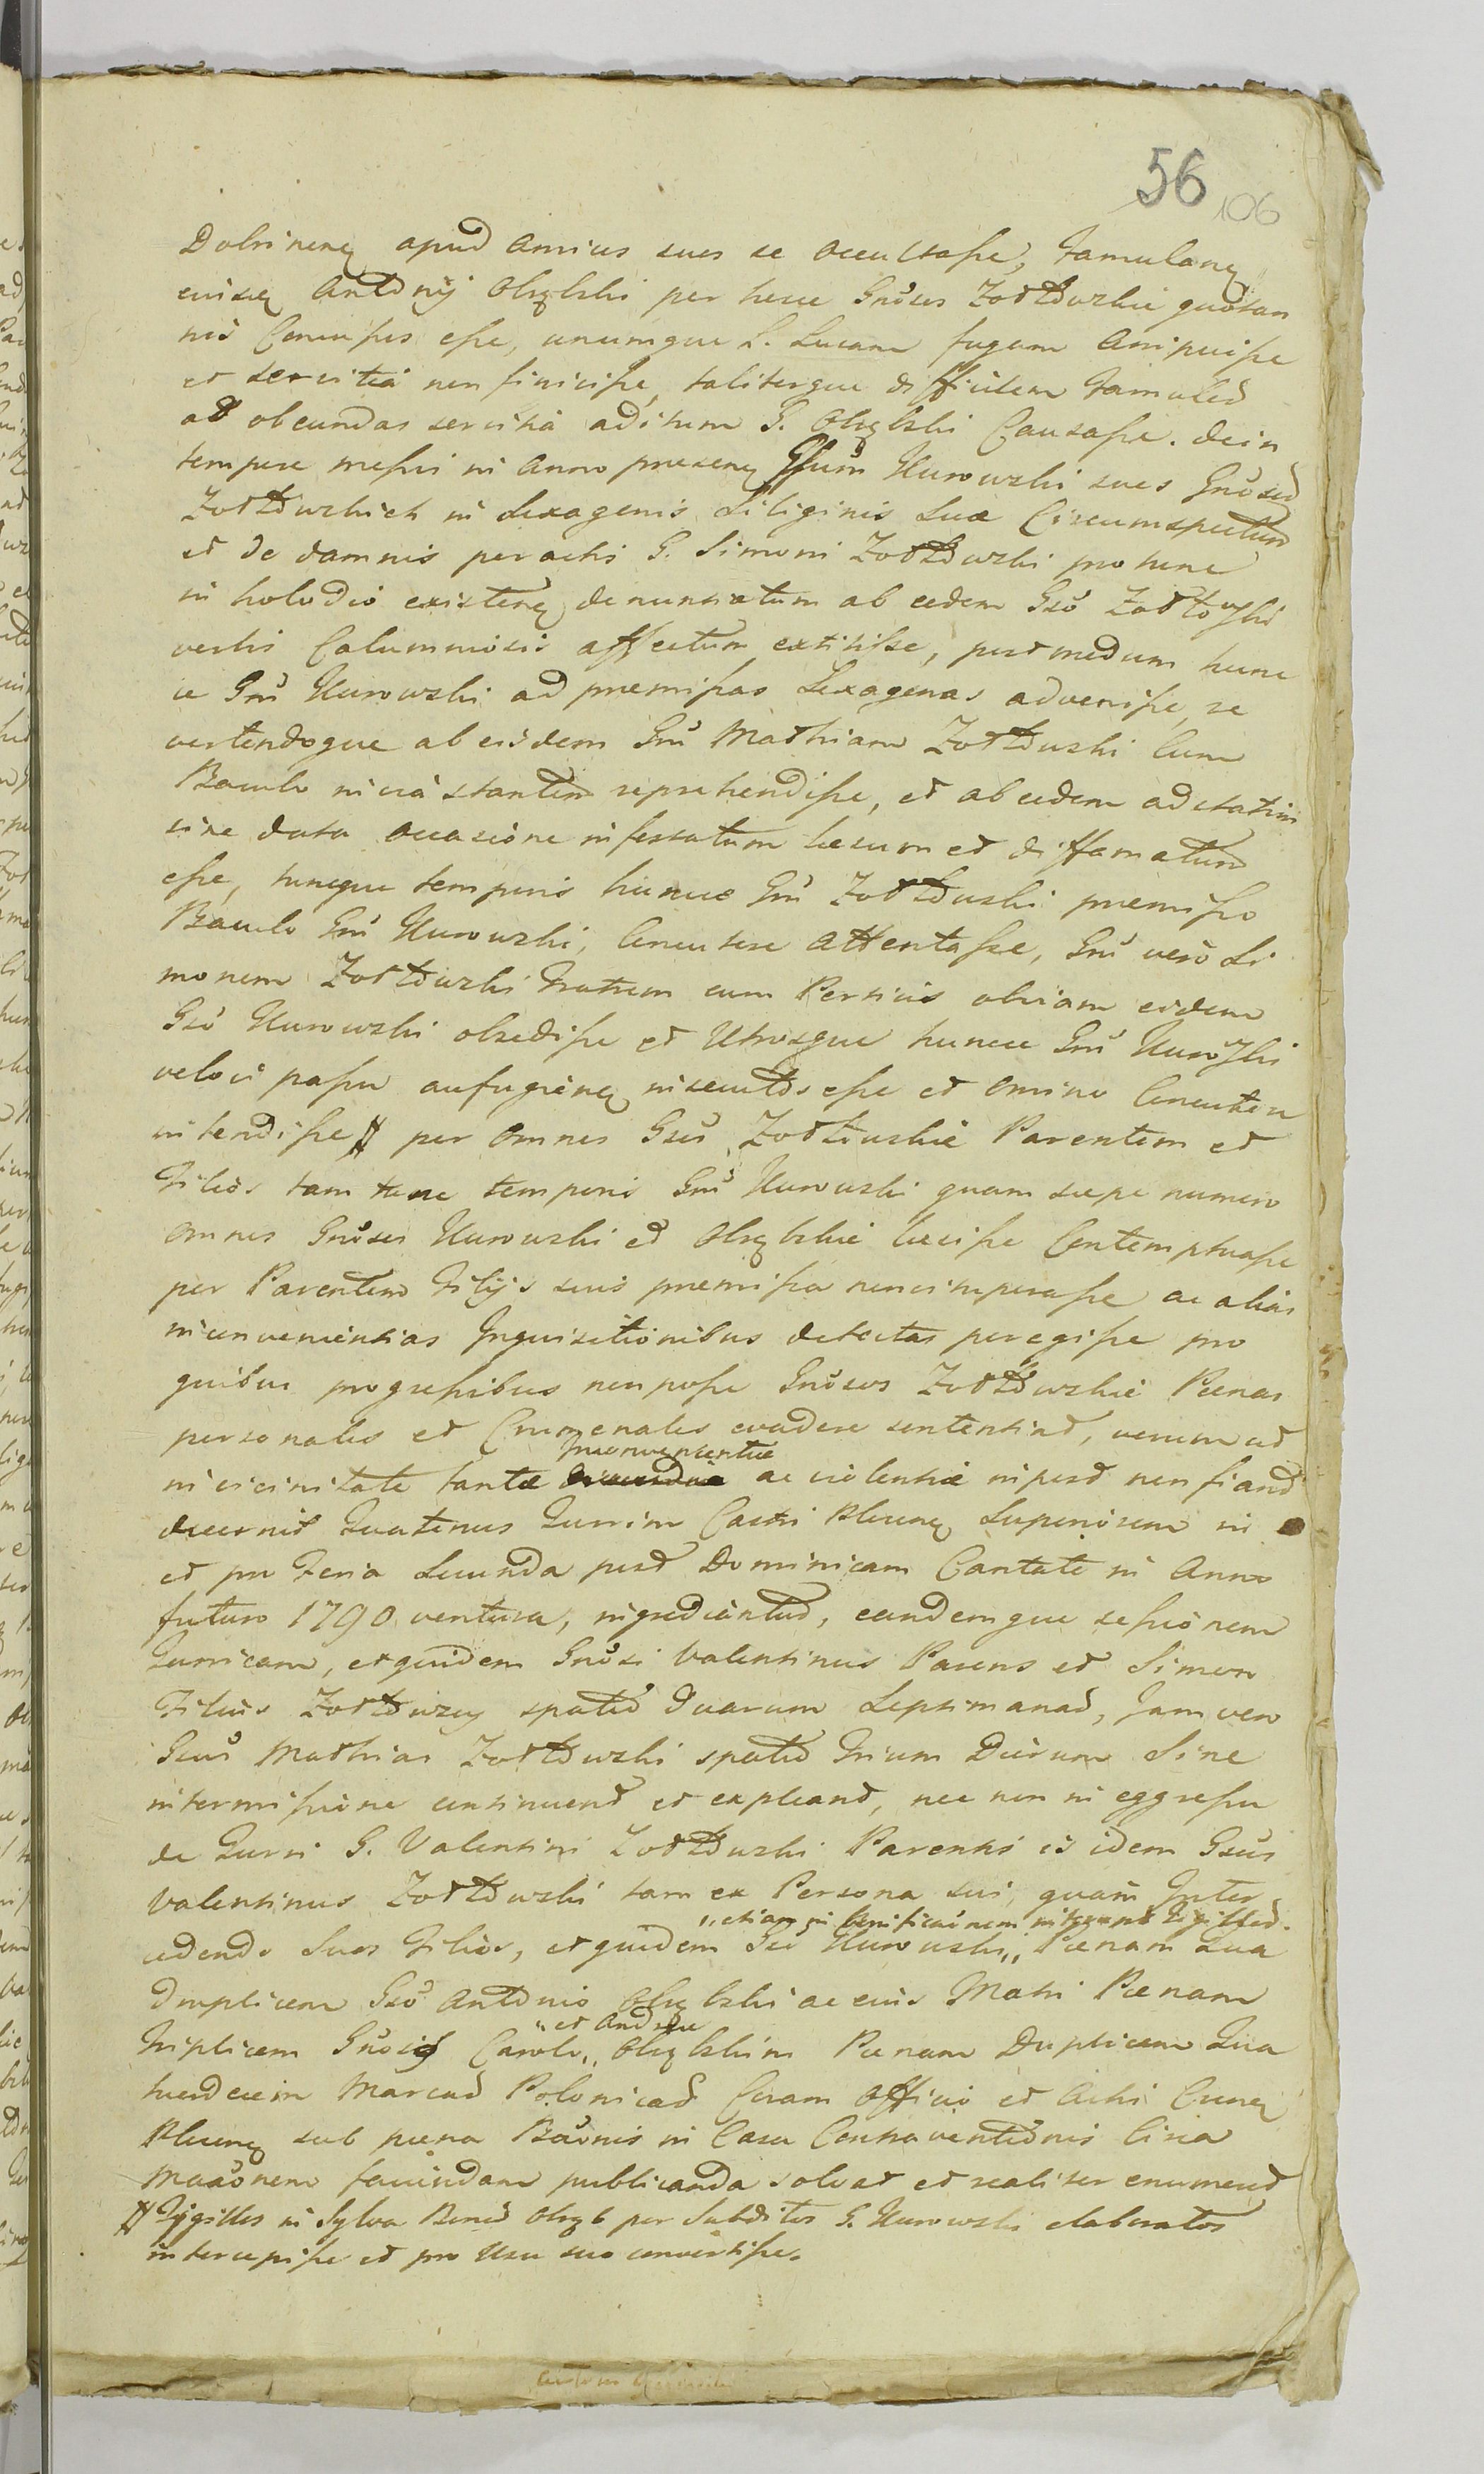 56 106
Dobrinens apud Amicos suos se occultasse, Famulang
eiusq Antonij Obrębski per hosce Gnŏsos Żołtowskie quotan
nis Concussos esse, unumque L. Lucam fugam Arripuisse
et servitia non finivisse, taliterque difficilem Famulis
ad obeundas servitia aditum G. Obrębski Causasse. dein
tempore messis in Anno praesenq Gsum Kurowski suos Gnŏsis
Żołtowskich in Sexagenis Siliginis Suae Circumspectum
et de damnis peractis G. Simoni Żołtowski pro tunc
in holodio existenq denuntiatum ab eodem Gsŏ Żołtowski
verbis Calumniosis affectum extitisse, postmodum hunc
ce Gnŭ Kurowski ad praemissas Sexagenas advenisse, re
vertendoque ab eisdem Gnŭ Mathiam Żołtowski Cum
Baculo in via stantem reprehendisse, et ab eodem adstatim
sine data occasione infestatum laesum et diffamatum
esse, tuncque temporis huncce Gnŭ Żołtowski praemisso
Baculo Gnŭ Kurowski, Concutere Attentasse, Gnŭ vero Si
monem Żołtowski Fratrem cum Perticis obviam eidem
Gsŏ Kurowski obsedisse et Utrosque huncce Gnŭ Kurowski
veloci passu aufugienq insecutos esse et Omnino Concutere
intendisse # per Omnes Gsos Żołtowskie Parentem et
Filios tam tunc temporis Gnŭ Kurowski quam saepe numero
omnes Gnŏsos Kurowski et Obrębskie laesisse Contemptuasse
per Parentem Filijs suis praemissa non vituperasse ac alias
inconvenientias Inquisitionibus detectas peregisse pro
quibus progressibus non posse Gnŏsos Żołtowskie Paenas
personales et Crumenales evadere sententiat, verum ut
in vicinitate tantae Inconvenientiae ac violentiae inpost non fiant
decernit Quatenus Turrim Castri Plocenq Superiorem in
et pro Feria Secunda post Dominicam Cantate in Anno
futuro 1790 ventura, ingrediantur, eandemque sessionem
Turricam, et quidem Gnŏsi Valentinus Parens et Simon
Filius Żołtowscy spatio duarum Septimanar, Jam vero
Gsus Mathias Żołtowski spatio Trium Dierum Sine
intermissione continuent et expleant, nec non in eggressu
de Turri G. Valentini Żołtowski Parentis is idem Gsus
Valentinus Żołtowski tam ex Persona sui, quam Inter
„etiam in bonificationem Tigillor.
cedendo Suos Filios, et quidem Gsŏ Kurowski „ Paenam Qua
druplicem Gsŏ Antonio Obrębski ac eius Matri Paenam
„et Andreae
Triplicem Gnŏsis Carolo „ Obrębskim Paenam Duplicem Qua
tuordecim Marcar Polonicar Coram Officio et Actis
Plocenq sub paena Bannis in Casu Contraventionis
publicanda solvat et realiter enumeret
# Tygillos in Sylva Bonor Obręb per Subditos G. Kurowski elaboratos
intercepisse et pro Usu suo convertisse.